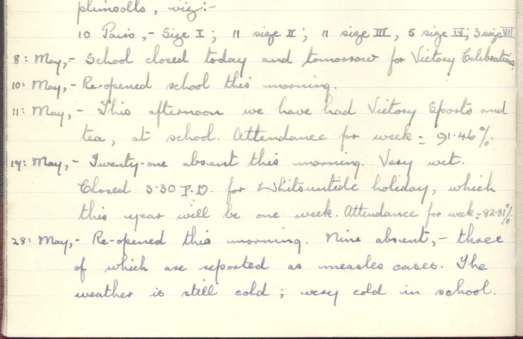 plimsolls, viz:-
10 Pairs,- Size I; 11 size II; 11 size III, 5 size IV; 3 size VII
8: May,- School closed today and tomorrow for Victory Celebrations
10: May,- Re-opened school this morning.
11: May,- This afternoon we have had Victory Sports and
tea, at school. Attendance for week = 91·46%.
17: May,- Twenty-one absent this morning. Very wet.
Closed 3-30 P.D. for Whitsuntide holiday, which
this year will be one week. Attendance for week = 92·31%
28: May,- Re-opened this morning. Nine absent,- three
of which are reported as measles cases. The
weather is still cold; very cold in school.